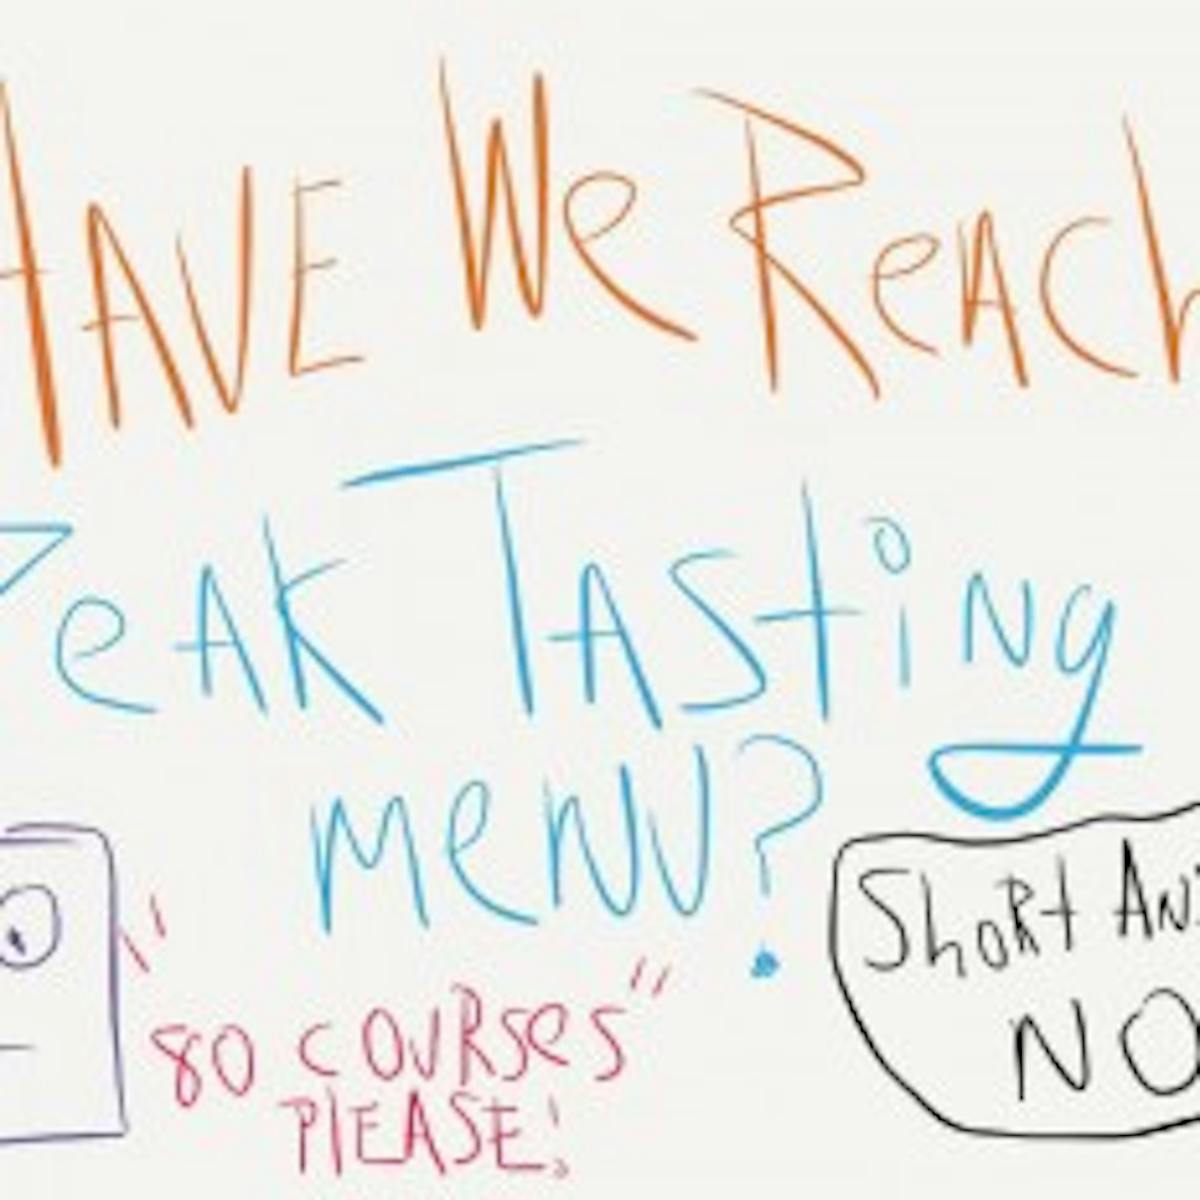 HAVE We ReACh
PeAK TAStiNg
MeNU?
ShoRt AN
NO
"80 COURSeS"
PlEASE!